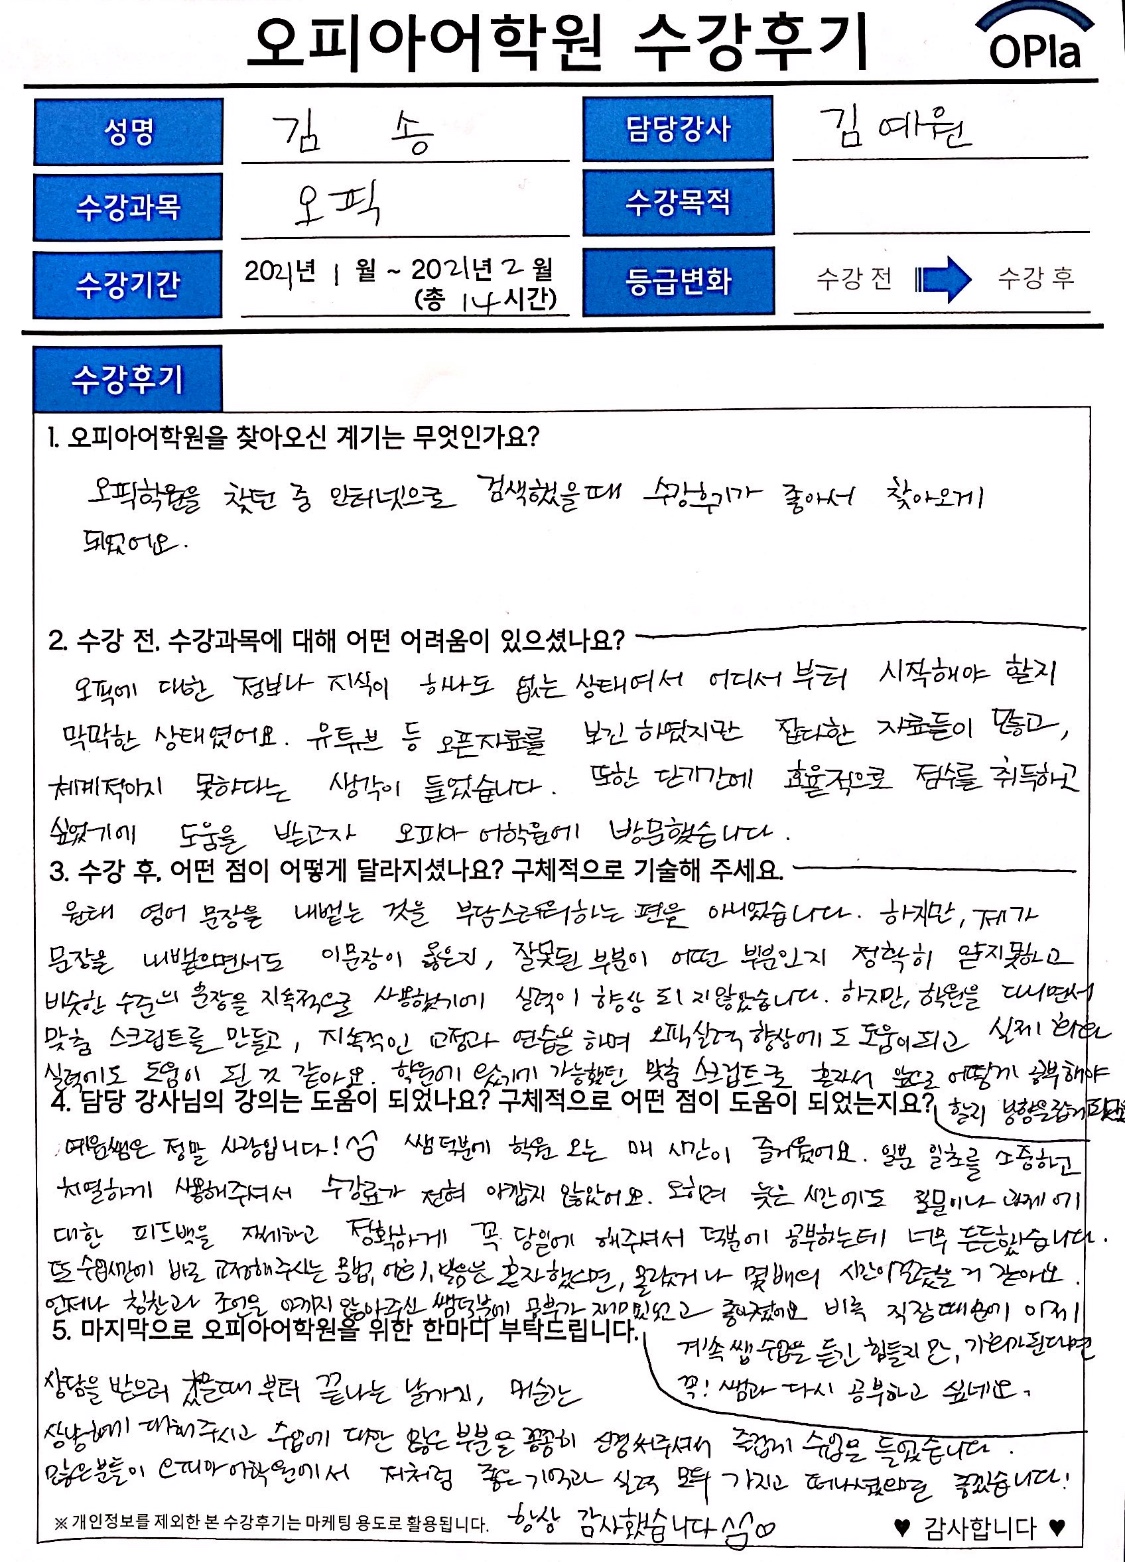 오피아어학원 수강후기
OPIa
성명 김 송 담당강사 김예원
수강과목 오픽 수강목적
수강기간 2021년 1월 ~ 2021년 2월 (총 14시간) 등급변화 수강 전 수강 후
수강후기
1. 오피아어학원을 찾아오신 계기는 무엇인가요?
오픽학원을 찾던 중 인터넷으로 검색했을때 수강후기가 좋아서 찾아오게
되었어요.
2. 수강 전, 수강과목에 대해 어떤 어려움이 있으셨나요?
오픽에 대한 정보나 지식이 하나도 없는 상태여서 어디서부터 시작해야 할지
막막한 상태였어요. 유튜브 등 오픈자료를 보긴 하였지만 잡다한 자료들이 많고,
체계적이지 못하다는 생각이 들었습니다. 또한 단기간에 효율적으로 점수를 취득하고
싶었기에 도움을 받고자 오피아 어학원에 방문했습니다.
3. 수강 후, 어떤 점이 어떻게 달라지셨나요? 구체적으로 기술해 주세요.
원래 영어 문장을 내뱉는 것을 부담스러워하는 편은 아니었습니다. 하지만, 제가
문장을 내뱉으면서도 이문장이 옳은지, 잘못된 부분이 어떤 부분인지 정확히 알지못하고
비슷한 수준의 문장을 지속적으로 사용했기에 실력이 향상 되지 않았습니다. 하지만, 학원을 다니면서
맞춤 스크립트를 만들고, 지속적인 교정과 연습을 하며 오픽실력 향상에도 도움이되고 실제 회화
실력에도 도움이 된 것 같아요. 학원에 있기에 가능했던 맞춤 스크립트로 혼자서 앞으로 어떻게 공부해야
할지 방향을 잡게
4. 담당 강사님의 강의는 도움이 되었나요? 구체적으로 어떤 점이 도움이 되었는지요?
예원쌤은 정말 사랑입니다! 쌤 덕분에 학원 오는 매 시간이 즐거웠어요. 일분 일초를 소중하고
치열하게 사용해주셔서 수강료가 전혀 아깝지 않았어요. 오히려 늦은 시간에도 질문이나 과제에
대한 피드백을 자세하고 정확하게 꼭 당일에 해주셔서 덕분에 공부하는데 너무 든든했습니다.
또 수업시간에 바로 교정해주시는 문법, 어휘, 발음은 혼자했으면, 몰랐거나 몇배의 시간이걸렸을거 같아요.
언제나 칭찬과 조언을 아끼지 않아주신 쌤덕분에 공부가 재미있었고 좋아졌어요 비록 직장때문에 이제
계속 쌤 수업을 듣긴 힘들지만, 기회가된다면
꼭! 쌤과 다시 공부하고 싶네요.
5. 마지막으로 오피아어학원을 위한 한마디 부탁드립니다.
상담을 받으러 왔을때 부터 끝나는 날까지, 매순간
상냥하게 대해주시고 수업에 대한 많은 부분을 꼼꼼히 신경써주셔서 즐겁게 수업을 들었습니다.
많은분들이 오피아어학원에서 저처럼 좋은기억과 실력 모두 가지고 떠나셨으면 좋겠습니다!
항상 감사했습니다 ^^♡
※ 개인정보를 제외한 본 수강후기는 마케팅 용도로 활용됩니다. ♥ 감사합니다 ♥